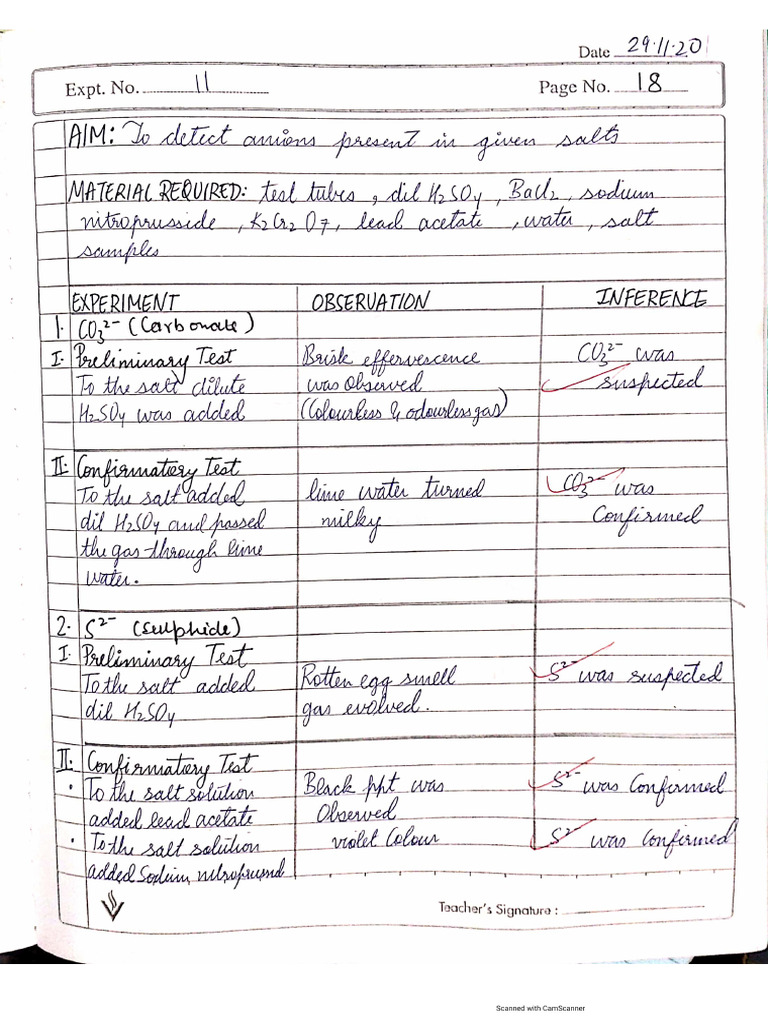 Date 29.11.20
Expt. No. 11 Page No. 18
AIM: To detect anions present in given salts
MATERIAL REQUIRED: test tubes, dil H₂SO₄, BaCl₂, sodium
nitroprusside, K₂Cr₂O₇, lead acetate, water, salt
samples
EXPERIMENT OBSERVATION INFERENCE
1. CO₃²⁻ (Carbonate)
I. Preliminary Test Brisk effervescence CO₃²⁻ was
To the salt dilute was Observed suspected
H₂SO₄ was added (Colourless & odourless gas)
II. Confirmatory Test
To the salt added lime water turned CO₃²⁻ was
dil H₂SO₄ and passed milky Confirmed
the gas through lime
water.
2. S²⁻ (Sulphide)
I. Preliminary Test
To the salt added Rotten egg smell S²⁻ was suspected
dil H₂SO₄ gas evolved.
II. Confirmatory Test
• To the salt solution Black ppt was S²⁻ was Confirmed
added lead acetate Observed
• To the salt solution violet Colour S²⁻ was Confirmed
added Sodium
Teacher's Signature :
Scanned with CamScanner